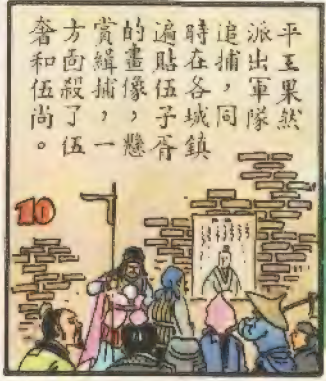 平王果然
派出軍隊
追捕，同
時在各城鎮
遍貼伍子胥
的畫像，懸
賞緝捕，一
方面殺了伍
奢和伍尚。
10